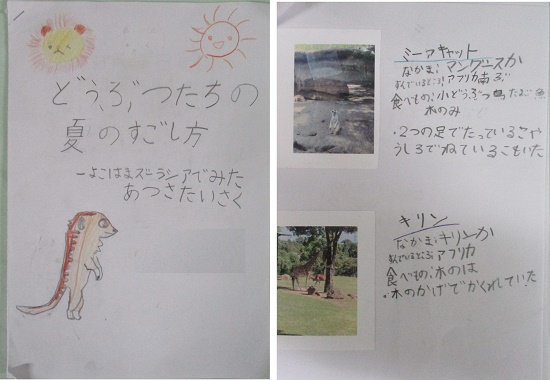 どうぶつたちの
夏のすごし方
ーよこはまズーラシアでみた
あつさたいさく
ミーアキャット
なかま:マングースか
すんでいるところ:アフリカ南ぶ
食べもの:小どうぶつ 鳥 たまご
木のみ
・2つの足でたっているこや
うしろでねていることもいた
キリン
なかま:キリンか
すんでいるところ:アフリカ
食べもの:木のは
・木のかげでかくれていた